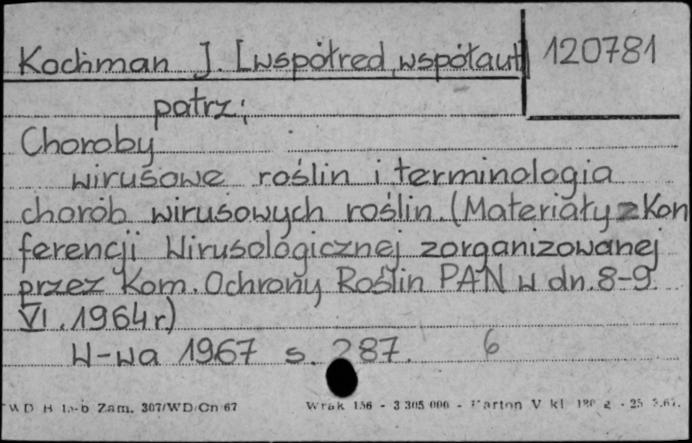 Kochman J. [współred, współaut] 120781
patrz:
Choroby
wirusowe roślin i terminologia
chorób wirusowych roślin. (Materiały z Kon
ferencji Wirusologicznej zorganizowanej
przez Kom. Ochrony Roślin PAN w dn. 8-9
VI. 1964 r)
W-wa 1967 s. 287. 6
Zam. 307/WD/Cn/67 - 3 305 000 - Karton V kl.